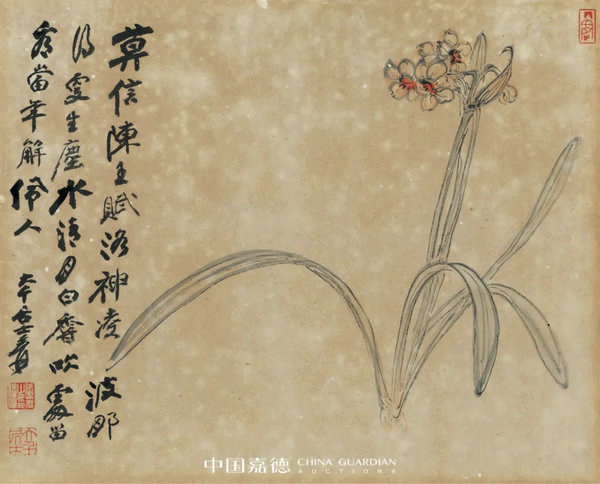 莫信陳王賦洛神凌波那
得更生塵水清月白香吹處留
看當年解佩人
大千居士爰
中国嘉德 CHINA GUARDIAN
AUCTIONS